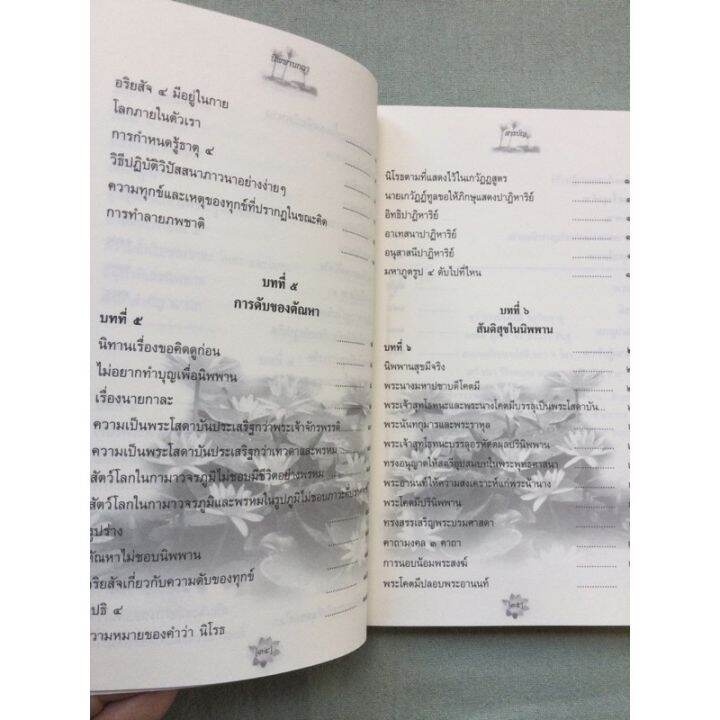 อริยสัจ ๔ มีอยู่ในกาย
โลกภายในตัวเรา
การกำหนดรู้ธาตุ ๔
วิธีปฏิบัติวิปัสสนาภาวนาอย่างง่ายๆ
ความทุกข์และเหตุของทุกข์ที่ปรากฏในขณะคิด
การทำลายภพชาติ
บทที่ ๕
การดับของตัณหา
บทที่ ๕
นิทานเรื่องขอคิดดูก่อน
ไม่อยากทำบุญเพื่อนิพพาน
เรื่องนายกาละ
ความเป็นพระโสดาบันประเสริฐกว่าพระเจ้าจักรพรรดิ
ความเป็นพระโสดาบันประเสริฐกว่าเทวดาและพรหม
สัตว์โลกในกามาวจรภูมิไม่ชอบมีชีวิตอย่างพรหม
สัตว์โลกในกามาวจรภูมิและพรหมในรูปภูมิไม่ชอบภาวะ
รูปร่าง
ตัณหาไม่ชอบนิพพาน
อริยสัจเกี่ยวกับความดับของทุกข์
ปธิ ๔
วามหมายของคำว่า นิโรธ
สารบัญ
นิโรธตามที่แสดงไว้ในเกวัฏฏสูตร
นายเกวัฏฏ์ทูลขอให้ภิกษุแสดงปาฏิหาริย์
อิทธิปาฏิหาริย์
อาเทสนาปาฏิหาริย์
อนุสาสนีปาฏิหาริย์
มหาภูตรูป ๔ ดับไปที่ไหน
บทที่ ๖
สันติสุขในนิพพาน
บทที่ ๖
นิพพานสุขมีจริง
พระนางมหาปชาบดีโคตมี
พระเจ้าสุทโธทนะและพระนางโคตมีบรรลุเป็นพระโสดาบัน...
พระนันทกุมารและพระราหุล
พระเจ้าสุทโธทนะบรรลุอรหัตตผลปรินิพพาน
ทรงอนุญาตให้สตรีอุปสมบทในพระพุทธศาสนา
พระอานนท์ให้ความสงเคราะห์แก่พระน้านาง
พระโคตมีปรินิพพาน
ทรงสรรเสริญพระบรมศาสดา
คาถามงคล ๓ คาถา
การนอบน้อมพระสงฆ์
พระโคตมีปลอบพระอานนท์